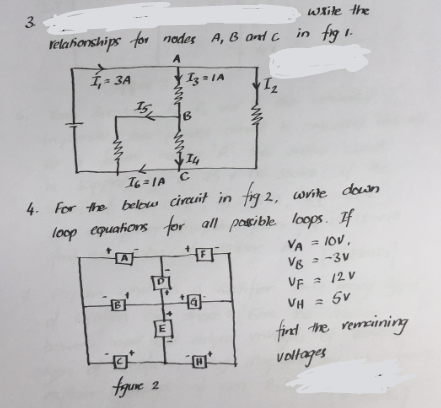 3. write the
relationships for nodes A, B and C in fig 1.
A
I₁ = 3A
I₃ = 1A
I₂
I₅
B
I₄
I₆ = 1A
C
4. For the below circuit in fig 2, write down
loop equations for all possible loops. If
V_A = 10V,
V_B = -3V
V_F = 12V
V_H = 5V
find the remaining
voltages
+ A - + F -
- D +
- B + + G -
+ E -
- C + - H +
figure 2